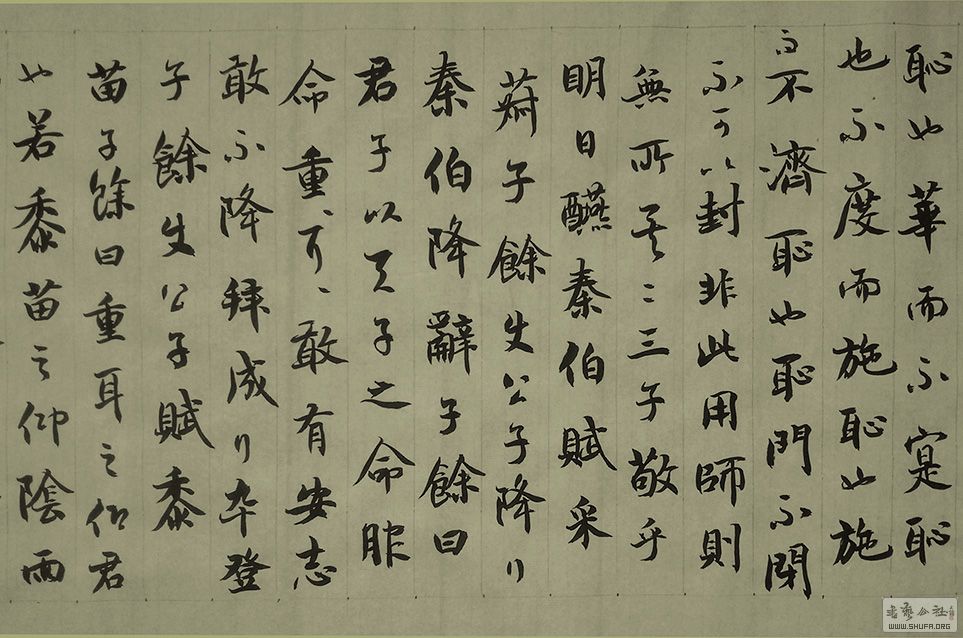 恥也華而不寔恥
也不度而施恥也施
而不濟恥也恥門不閉
不可以封非此用師則
無所矣二三子敬乎
明日醼秦伯賦采
菽子餘使公子降拜
秦伯降辭子餘曰
君子以天子之命服
命重〻耳〻敢有安志
敢不降拜成拜卒登
子餘使公子賦黍
苗子餘曰重耳之仰君
也若黍苗之仰陰雨
書藝公社
WWW.SHUFA.ORG